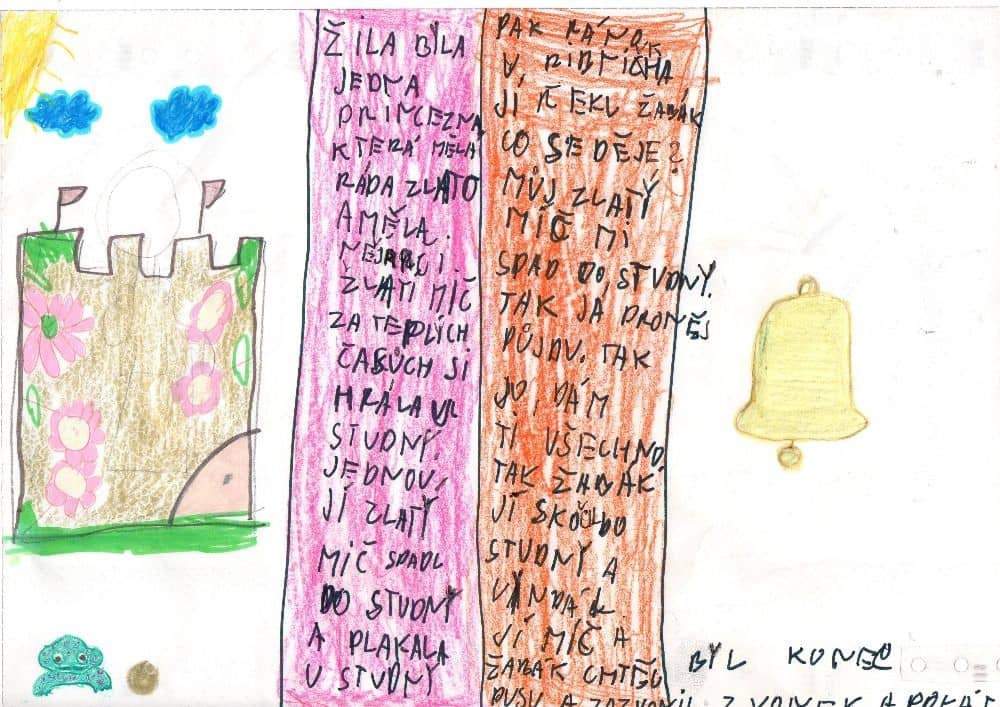 ŽILA BYLA
JEDNA
PRINCEZNA
KTERÁ MĚLA
RÁDA ZLATO
A MĚLA.
ZLATI MÍČ
ZA TEPLÍCH
ČASŮCH SI
HRÁLA U
STUDNY.
JEDNOU,
JÍ ZLATÝ
MIČ SPADL
DO STUDNY
A PLAKALA
U STUDNY
PAK
V,
JI ŘEKL ŽABÁK
CO SE DĚJE?
MŮJ ZLATÝ
MÍČ MI
SPAD DO STUDNY.
TAK JA PRONĚJ
PŮJDU. TAK
JO, DÁM
TI VŠECHNO.
TAK ŽABÁK
JÍ SKOČL DO
STUDNY A
VYNDÁL
JÍ MÍČ A
ŽABÁK CHTĚL
PUSU A ZAZVONIL ZVONEK A
BYL KONEC